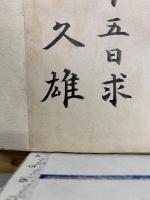 五日求
久雄